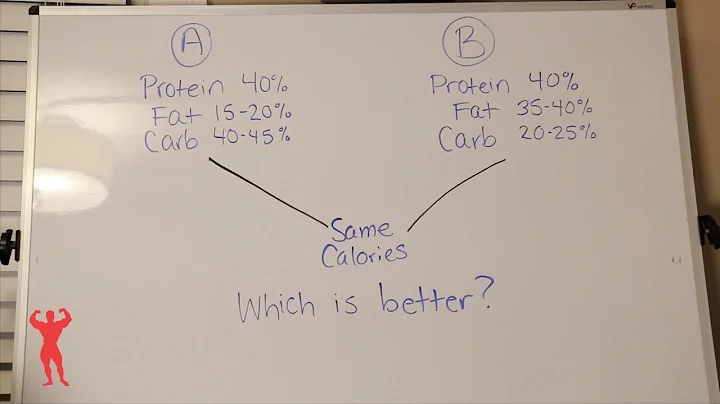 A
Protein 40%
Fat 15-20%
Carb 40-45%
B
Protein 40%
Fat 35-40%
Carb 20-25%
Same
Calories
Which is better?